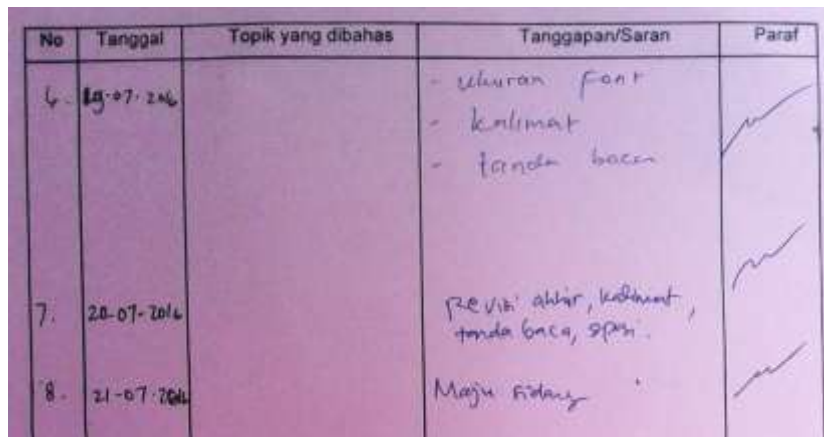 No Tanggal Topik yang dibahas Tanggapan/Saran Paraf
6. 19-07-2016 - ukuran font
- kalimat
- tanda baca
7. 20-07-2016 Revisi akhir, kalimat,
tanda baca, spasi.
8. 21-07-2016 Maju sidang